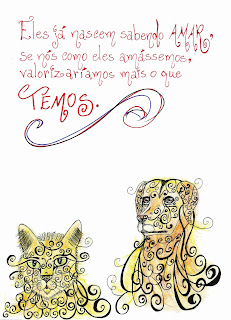 Eles já nascem sabendo AMAR,
se nós como eles amássemos,
valorizaríamos mais o que
TEMOS.